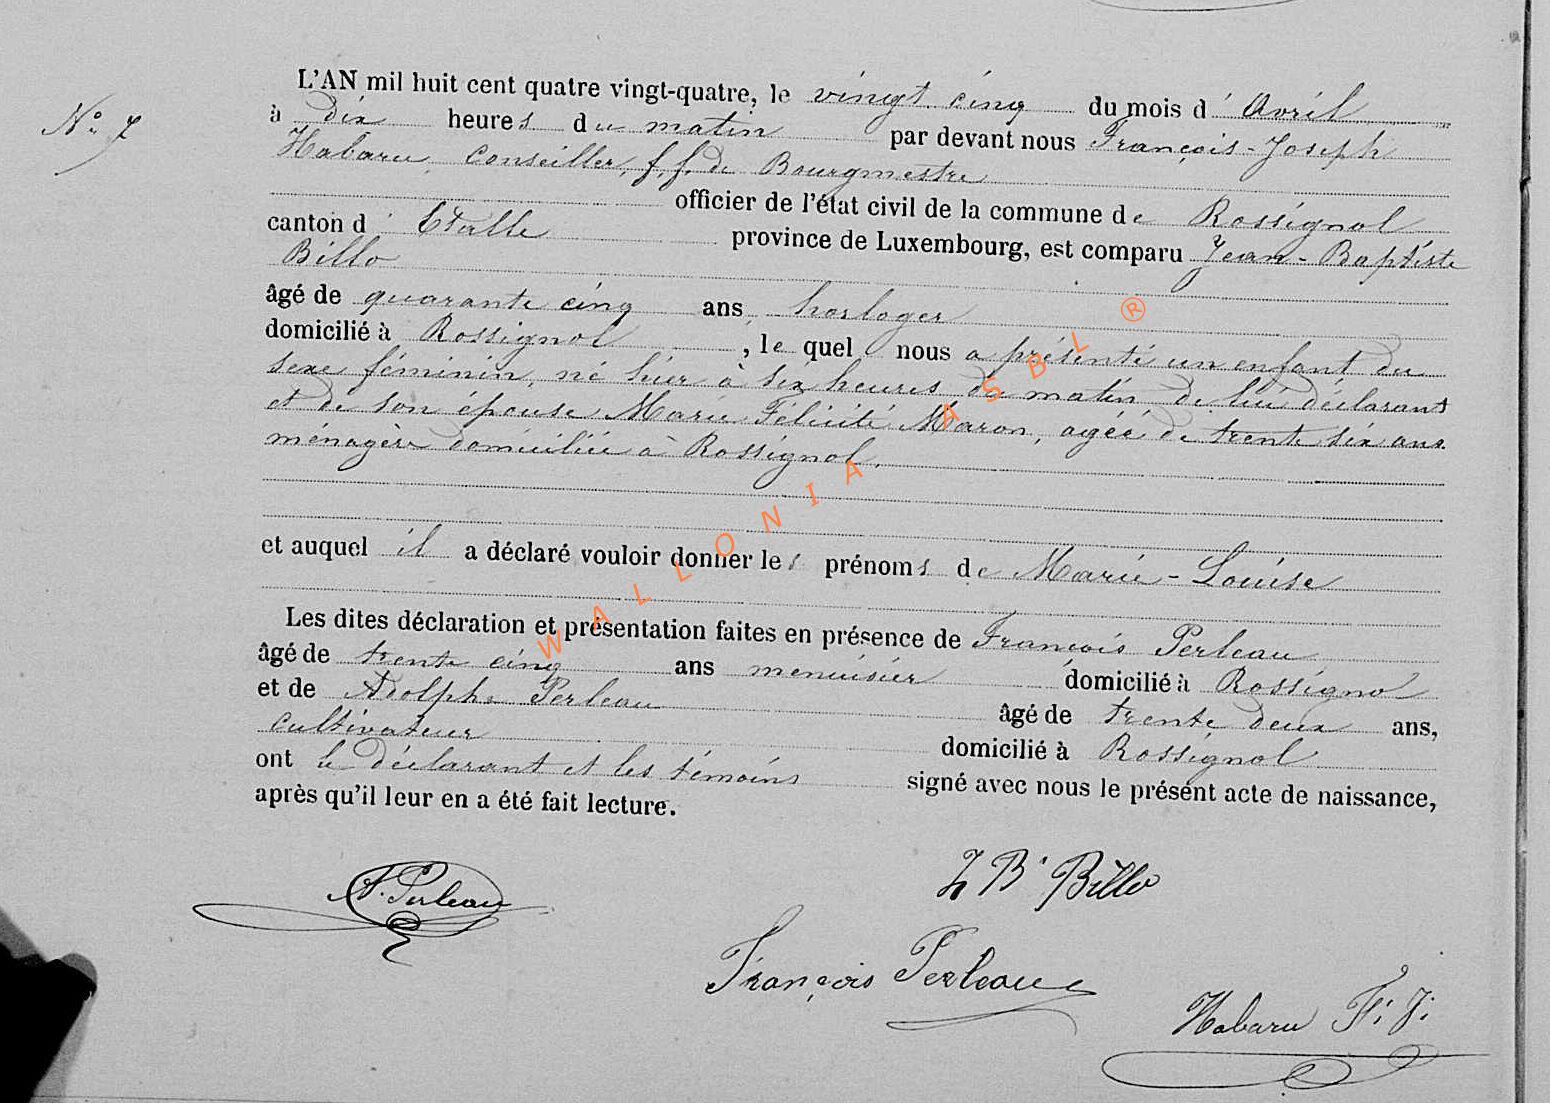 N° 7
L'AN mil huit cent quatre vingt-quatre, le vingt cinq du mois d' Avril
à dix heures du matin par devant nous François-Joseph
Habaru, Conseiller, f. f. de Bourgmestre
officier de l'état civil de la commune de Rossignol
canton d' Etalle province de Luxembourg, est comparu Jean-Baptiste
Billo
âgé de quarante cinq ans, horloger
domicilié à Rossignol, le quel nous a présenté un enfant du
sexe féminin, né hier à six heures du matin de lui déclarant
et de son épouse Marie Félicité Maron, agée de trente six ans
ménagère domiciliée à Rossignol.
et auquel il a déclaré vouloir donner les prénoms de Marie-Louise
Les dites déclaration et présentation faites en présence de François Perleau
âgé de trente cinq ans menuisier domicilié à Rossignol
et de Adolphe Perleau âgé de trente deux ans,
cultivateur domicilié à Rossignol
ont le déclarant et les témoins signé avec nous le présent acte de naissance,
après qu'il leur en a été fait lecture.
A. Perleau
J Bte Billo
François Perleau
Habaru F. J.
WALLONIA ASBL ®